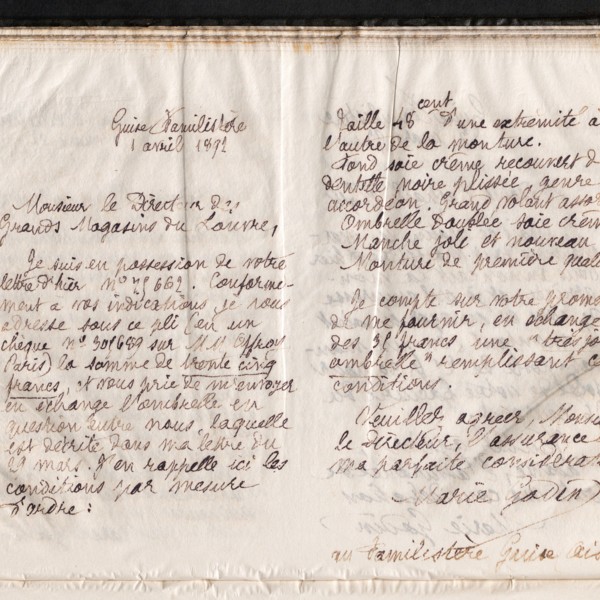 Guise Familistère
1 avril 1892
Monsieur le Directeur des
Grands Magasins du Louvre,
Je suis en possession de votre
lettre d'hier n° 75 662. Conforme-
ment a vos indications je vous
adresse sous ce pli (en un
chèque n° 301689 sur M.M. Offroy
Paris) la somme de trente cinq
francs, et vous prie de m'envoyer
en échange l'ombrelle en
question entre nous, laquelle
est décrite dans ma lettre du
29 mars. J'en rappelle ici les
conditions par mesure
d'ordre :
Taille 48 cent. d'une extrémité à
l'autre de la monture.
Fond soie crême recouvert d
dentelle noire plissée, genre
accordéon. Grand volant assor
Ombrelle doublée soie crêm
Manche joli et nouveau
Monture de première quali
Je compte sur votre prom
de me fournir, en échange
des 35 francs, une "très jo
ombrelle" remplissant c
conditions.
Veuillez agréer, Monsi
le Directeur, l'assurance
ma parfaite considérat
Marie Godin
au Familistère Guise Ais